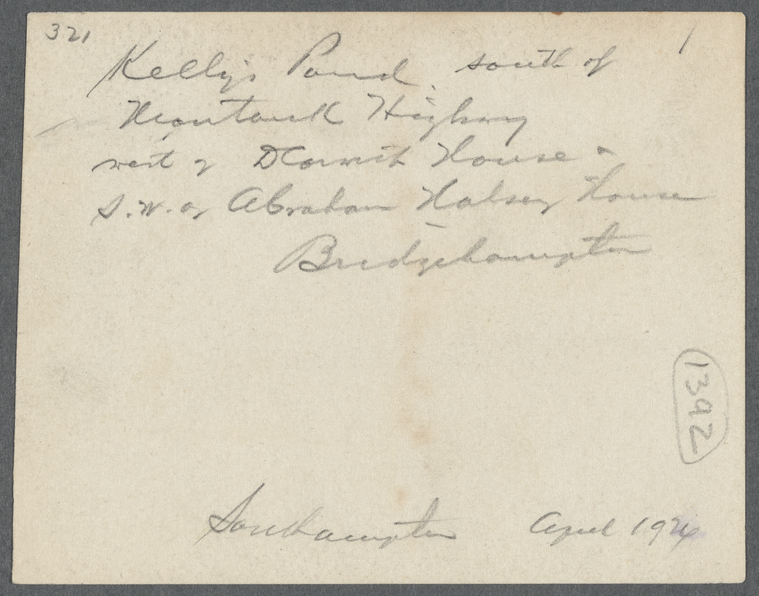 321
Kelly's Pond, south of
Montauk Highway
west of House &
S.W. of Abraham Halsey House
Bridgehampton
1392
Southampton April 192